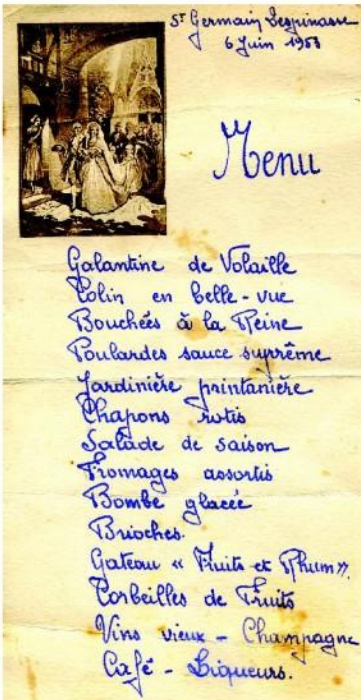 St Germain Lespinasse
6 Juin 1953
Menu
Galantine de Volaille
Colin en belle-vue
Bouchées à la Reine
Poulardes sauce suprême
Jardinière printanière
Chapons rotis
Salade de saison
Fromages assortis
Bombe glacée
Brioches.
Gateau « Fruits et Rhum »
Corbeilles de Fruits
Vins vieux - Champagne
Café - Liqueurs.